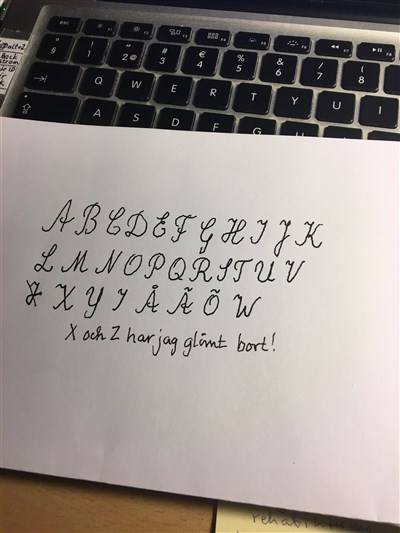 ! 1 " 2 @ # 3 € 4 % 5 & 6 / 7 ( 8
Q W E R T Y U I
A S D F G
A B C D E F G H I J K
L M N O P Q R S T U V
X Y I Å Ã Õ W
X och Z har jag glömt bort!